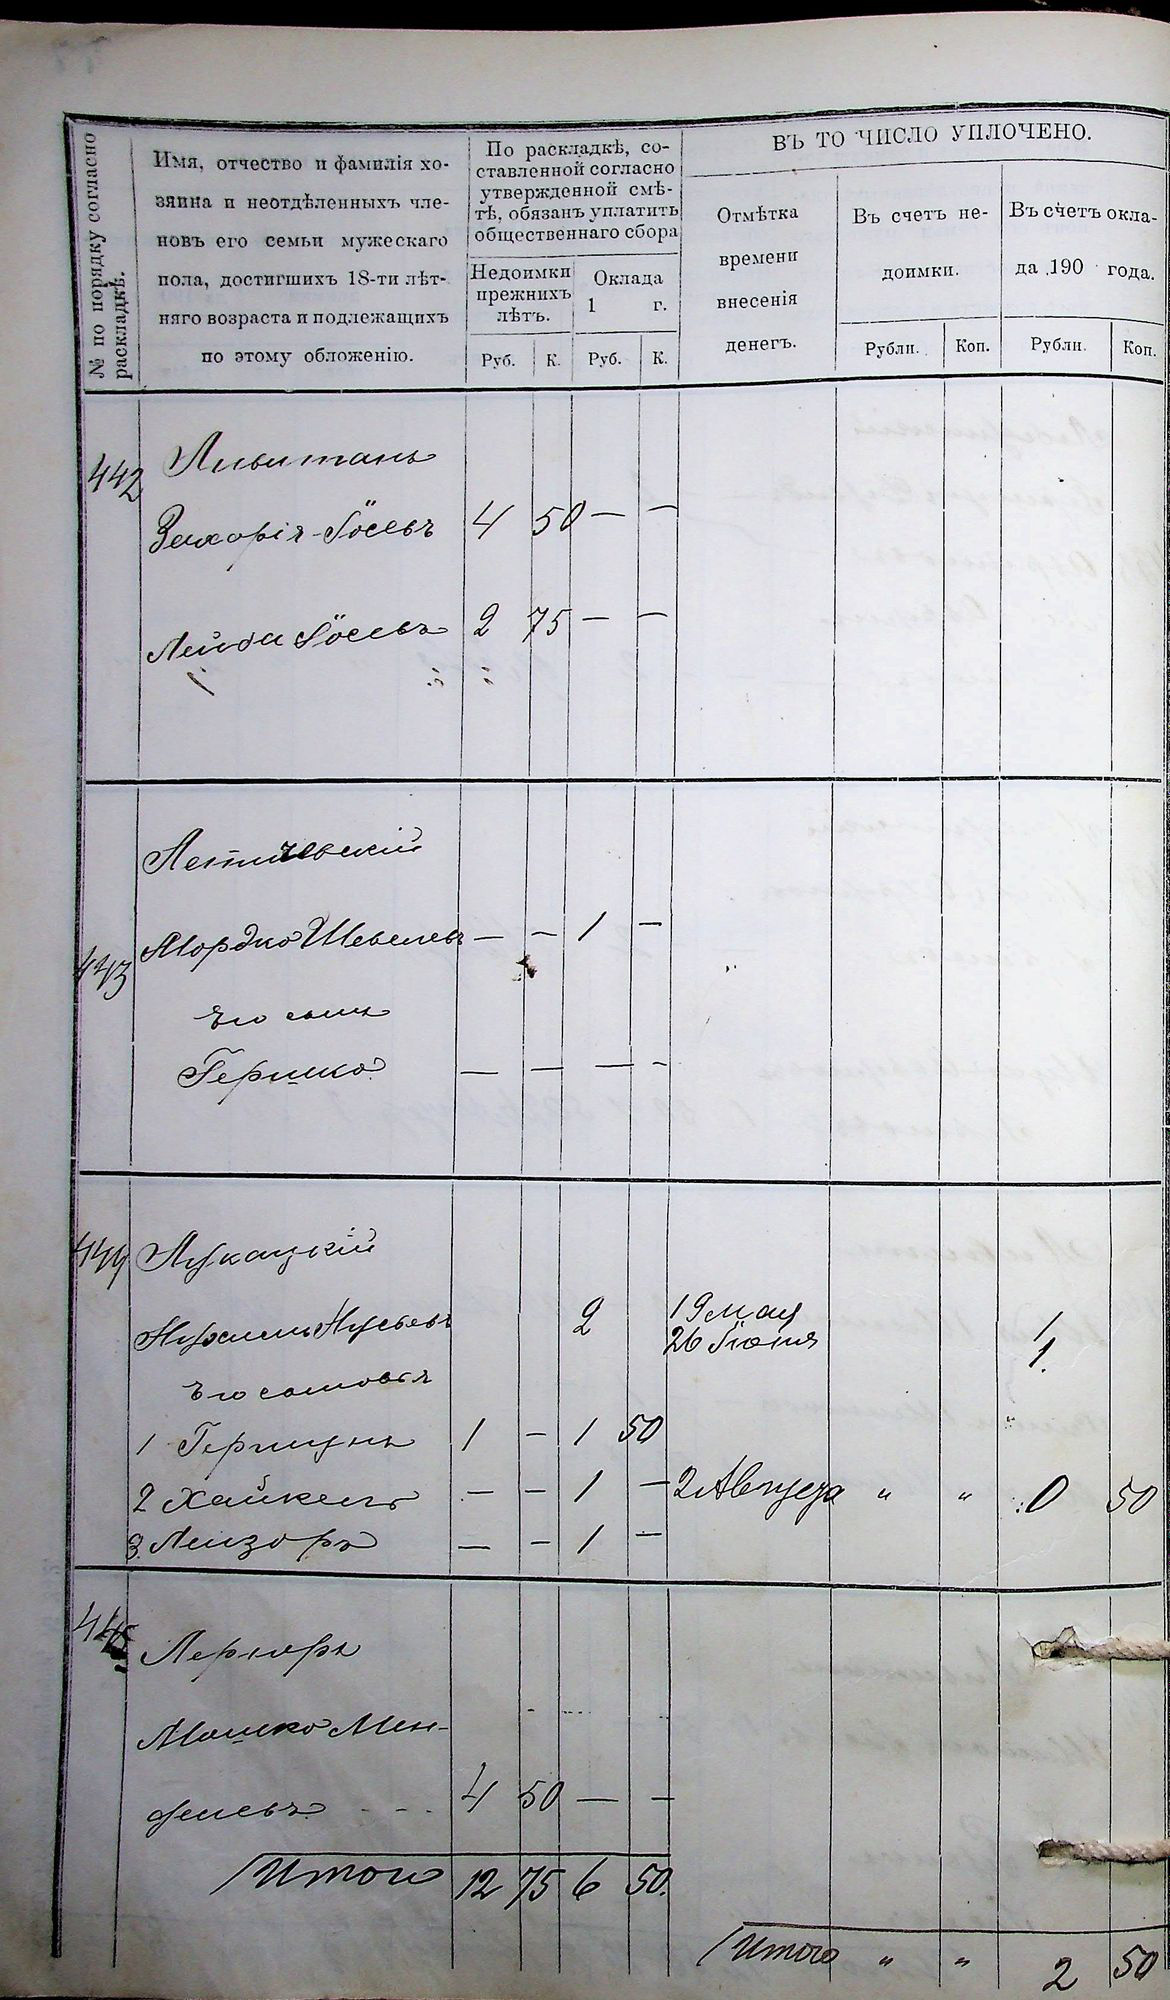 № по порядку согласно
раскладкѣ.
Имя, отчество и фамилія хо-
зяина и неотдѣленныхъ чле-
новъ его семьи мужескаго
пола, достигшихъ 18-ти лѣт-
няго возраста и подлежащихъ
по этому обложенію.
По раскладкѣ, со-
ставленной согласно
утвержденной смѣ-
тѣ, обязанъ уплатить
общественнаго сбора
Недоимки
прежнихъ
лѣтъ.
Оклада
1 г.
Руб. К. Руб. К.
ВЪ ТО ЧИСЛО УПЛОЧЕНО.
Отмѣтка
времени
внесенія
денегъ.
Въ счетъ не-
доимки.
Въ счетъ окла-
да 190 года.
Рубли. Коп. Рубли. Коп.
442 Ливитанъ
Захорія-Іосевъ 4 50 — —
Лейба Іосевъ 2 75 — —
Летичевскій
443 Мордко Шевелевъ — — 1 —
Его сынъ
Гершко — — — —
444 Лукацкій
Нухимъ Нусьевъ 2 19 мая 1
26 Іюня 1.
Его сыновья
1 Гершунъ 1 — 1 50
2 Хайкель — — 1 — 2 Августа " " 0 50
3. Лейзоръ — — 1 —
445 Лернеръ
Мошко Мен-
делевъ 4 50 — —
Итого 12 75 6 50.
Итого " " 2 50